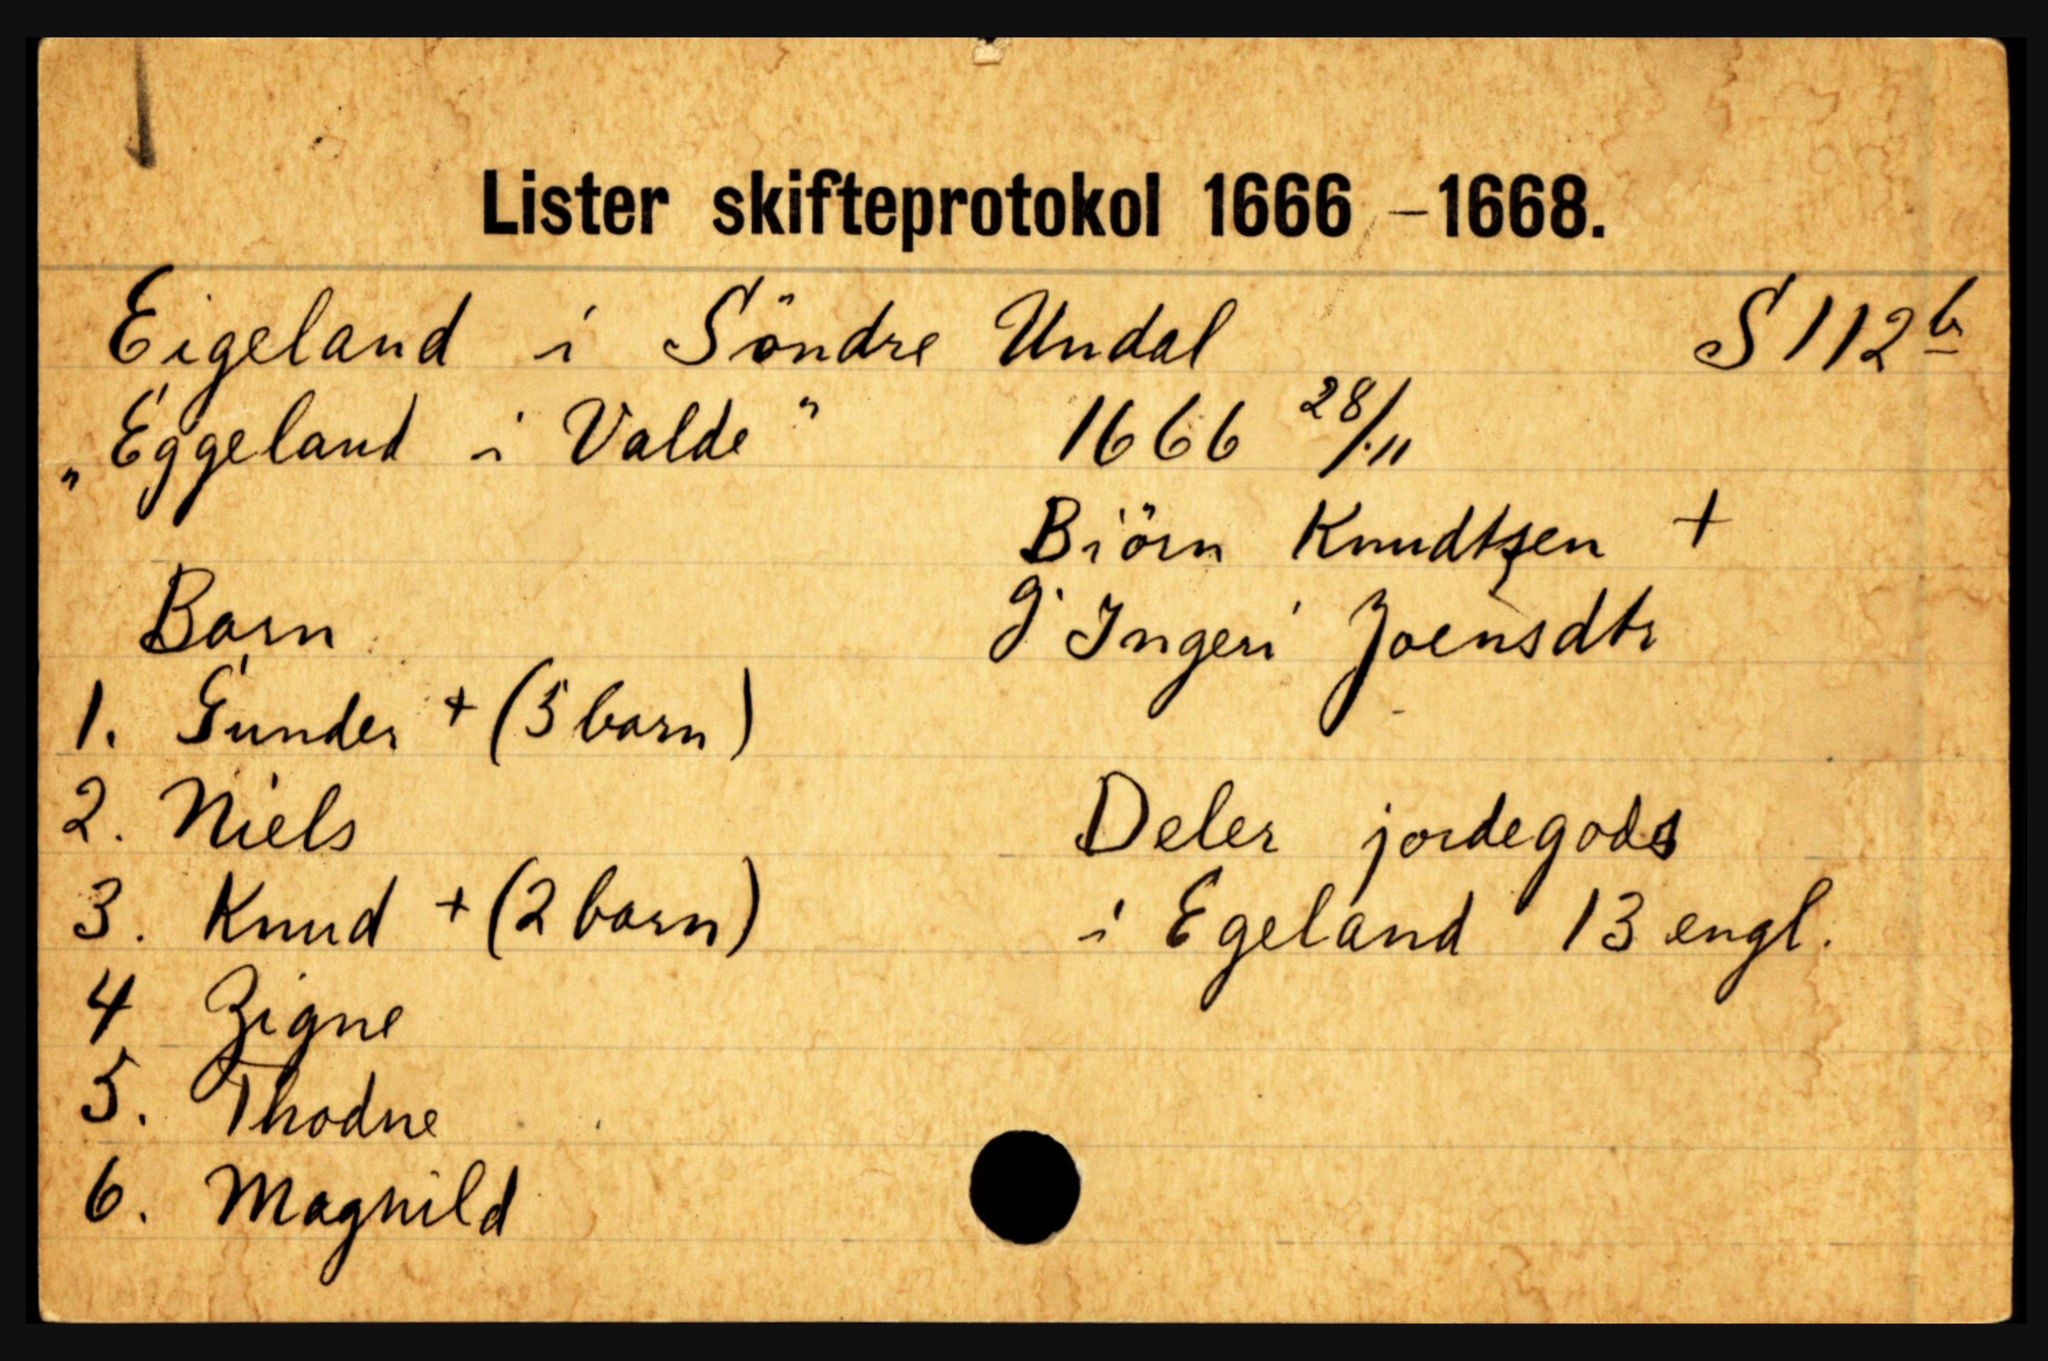 Lister skifteprotokol 1666 - 1668.
Eigeland i Söndre Undal S 112 b
„Eggeland i Valde" 1666 28/11
Biörn Knudtsen +
Barn g. Ingeri Joensdtr
1. Gunder + (5 barn)
2. Niels Deler jordegods
3. Knud + (2 barn) i Egeland 13 engl.
4 Zigne
5. Thodne
6. Magnild